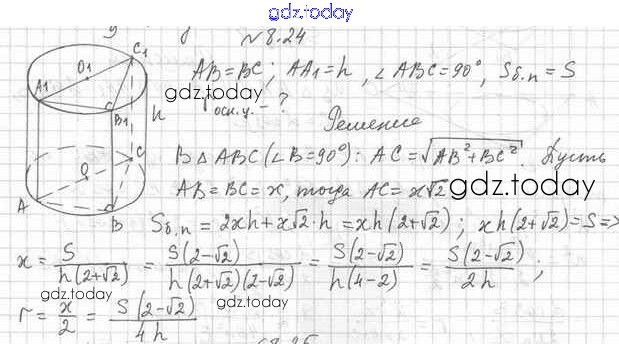 gdz.today
№8.24
AB=BC; AA₁=h, ∠ABC=90°, Sб.п=S
gdz.today
rосн.ц. – ?
Решение
В △ABC (∠B=90°): AC=√(AB²+BC²). Пусть
AB=BC=x, тогда AC=x√2
gdz.today
Sб.п = 2xh+x√2·h = xh(2+√2); xh(2+√2)=S =>
x = S/(h(2+√2)) = S(2-√2)/(h(2+√2)(2-√2)) = S(2-√2)/(h(4-2)) = S(2-√2)/(2h);
gdz.today
gdz.today
r = x/2 = S(2-√2)/(4h)
C₁
O₁
A₁
B₁
h
C
O
A
B